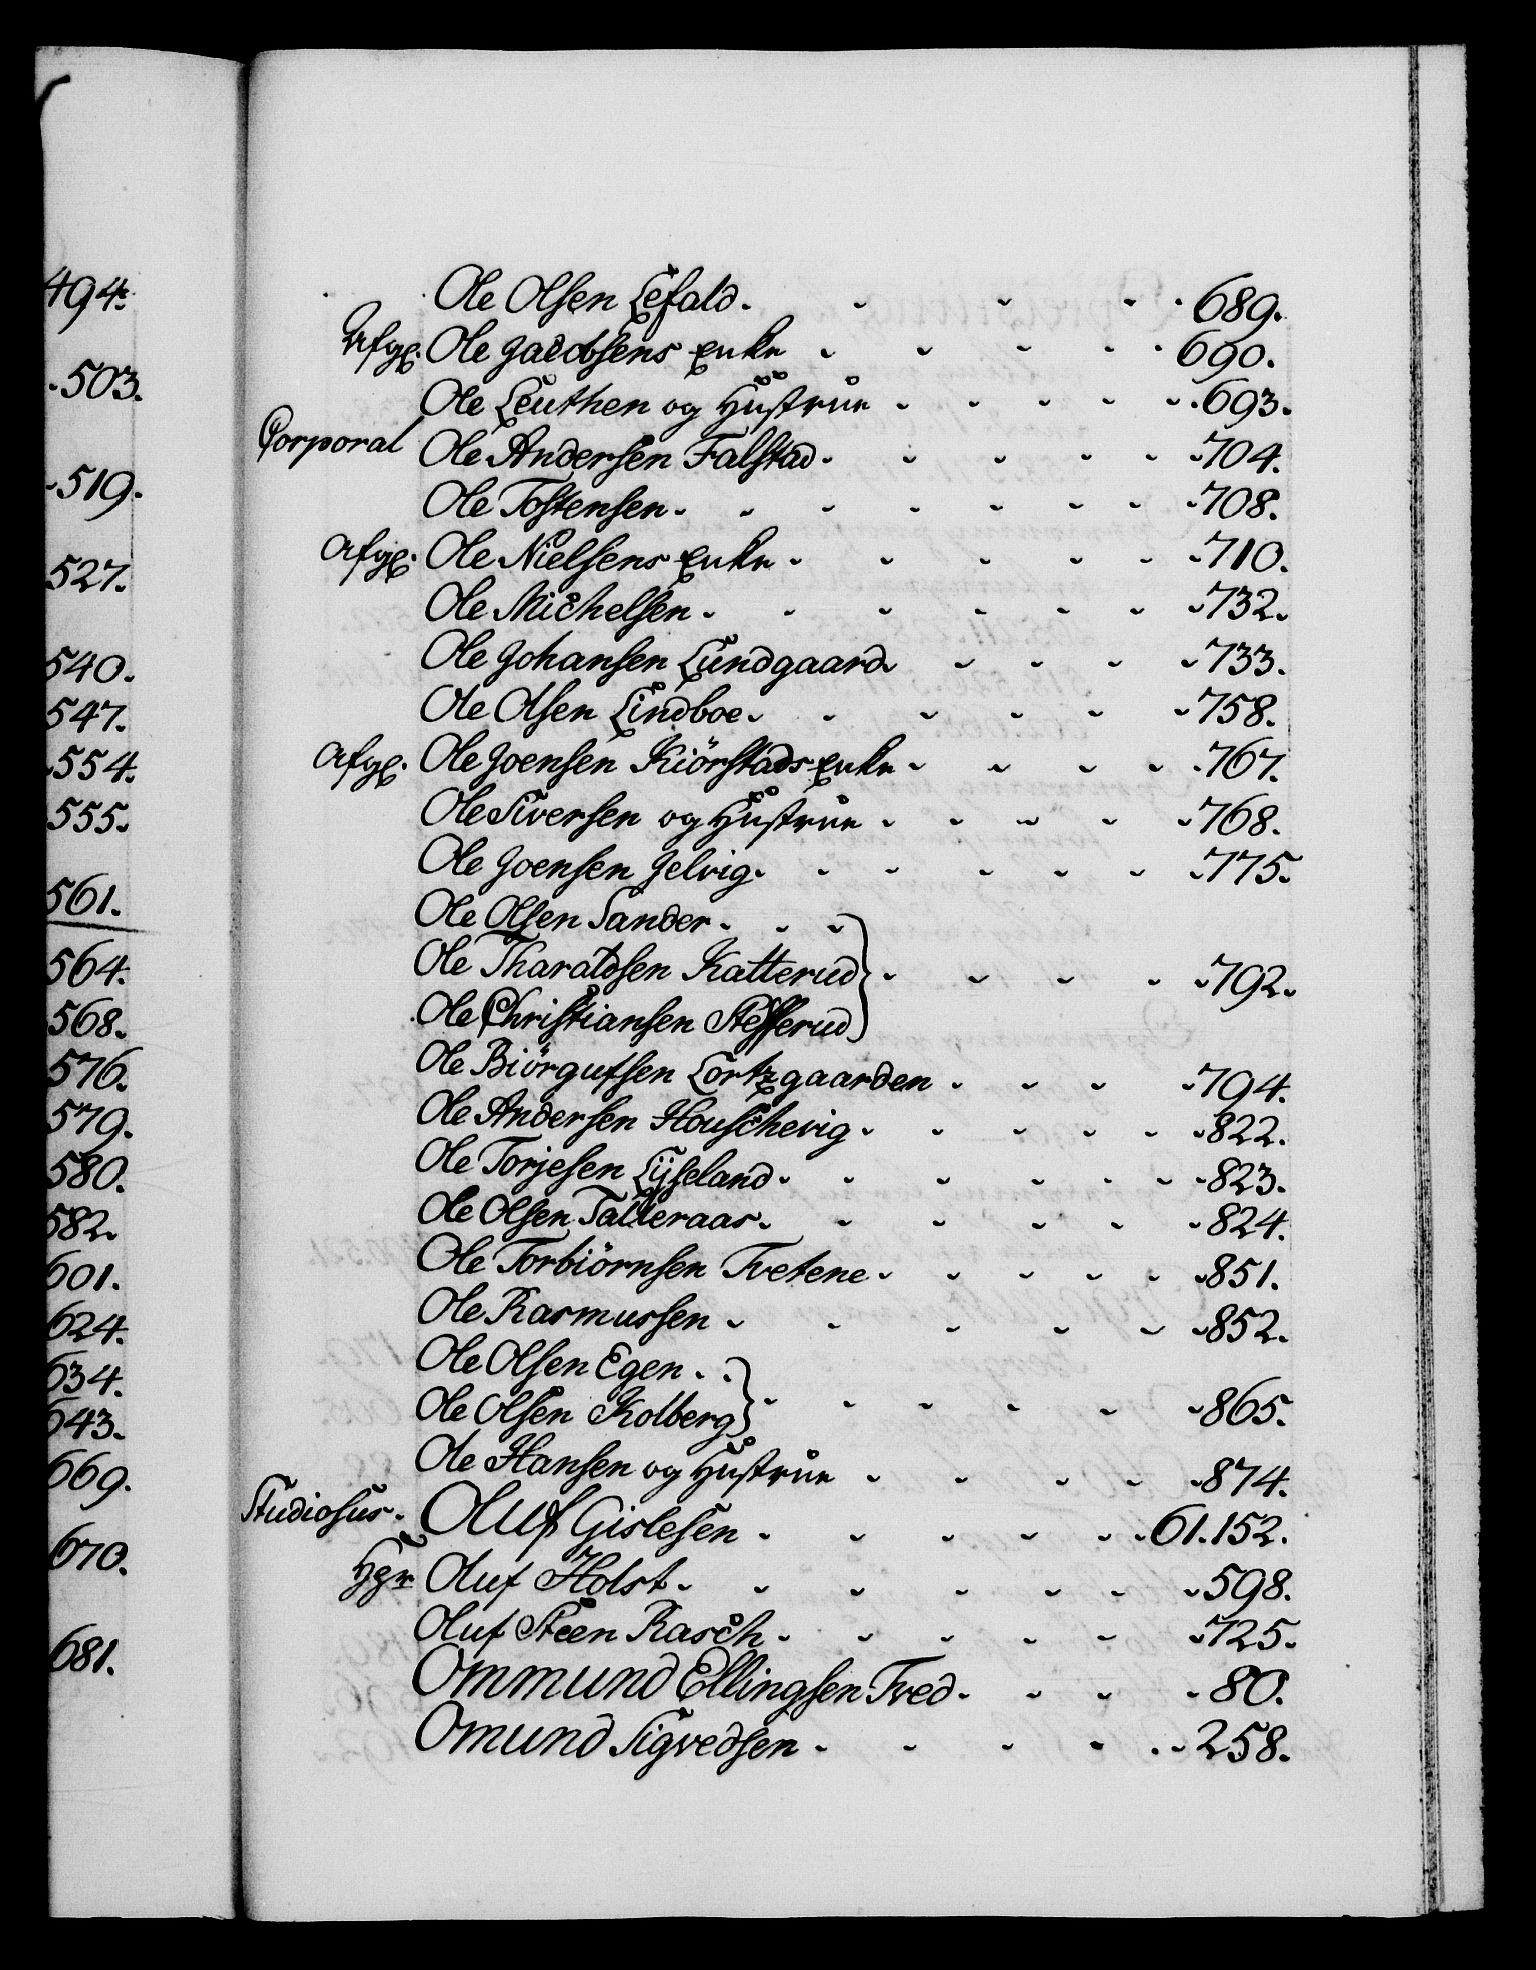 494.
503.
519.
527.
540.
547.
554.
555.
561.
564.
568.
576.
579.
580.
582.
601.
624.
634.
643.
669.
670.
681.
Ole Olsen Lefald. 689.
Afg. Ole Jacobsens Enke 690.
Ole Leuthen og Hustrue 693.
Corporal Ole Andersen Falstad. 704.
Ole Tostensen. 708.
Afg. Ole Nielsens Enke 710.
Ole Michelsen. 732.
Ole Johansen Lundgaard 733.
Ole Olsen Lindboe. 758.
Afg. Ole Joensen Kiörstads Enke 767.
Ole Siversen og Hustrue 768.
Ole Joensen Jelvig. 775.
Ole Olsen Sander.
Ole Tharaldsen Katterud 792.
Ole Christiansen Stefferud
Ole Biörgufsen Cortzgaarden 794.
Ole Andersen Houschevig 822.
Ole Torjesen Lijseland 823.
Ole Olsen Talleraas. 824.
Ole Torbiörnsen Tvetene 851.
Ole Rasmussen 852.
Ole Olsen Egen.
Ole Olsen Kolberg 865.
Ole Hansen og Hustrue 874.
Studiosus. Oluf Gislesen 61. 152.
Hgr Oluf Holst. 598.
Oluf Steen Rasch. 725.
Ommund Ellingsen Tved. 80.
Omund Sigvedsen 258.